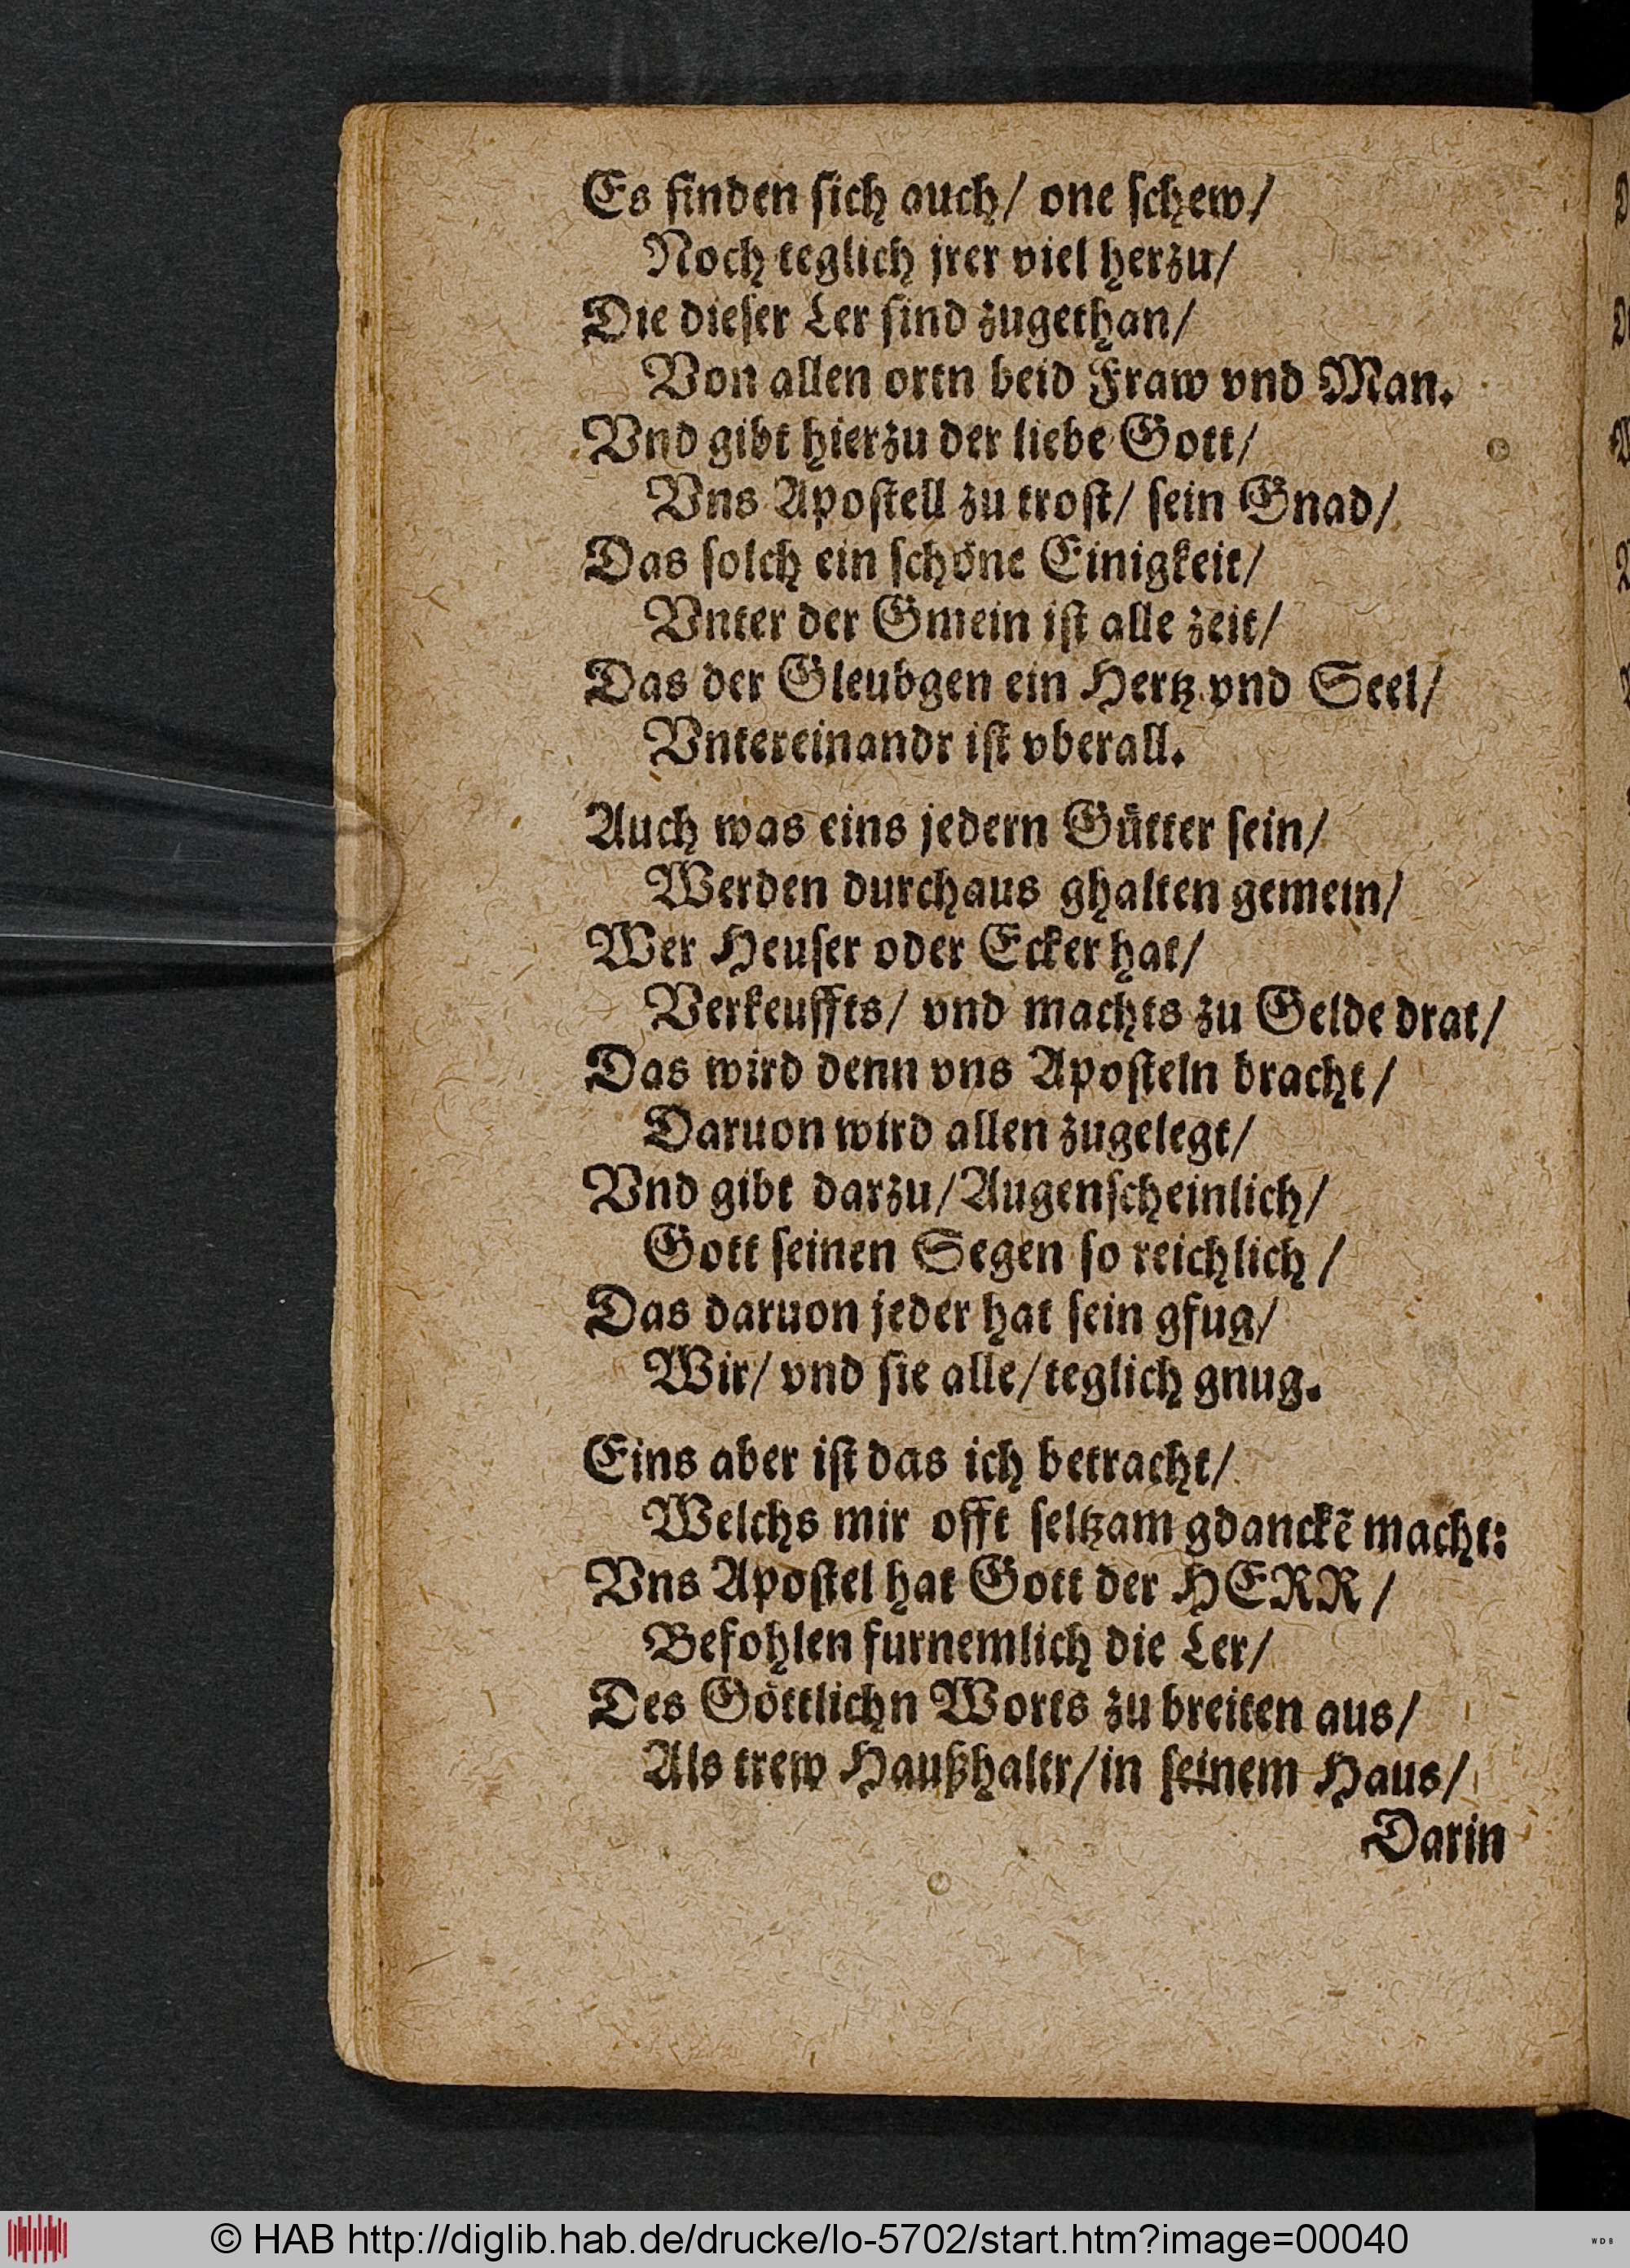 Es finden ſich auch/ one ſchew/
Noch teglich jrer viel herzu/
Die dieſer Ler ſind zugethan/
Von allen ortn beid Fraw vnd Man.
Vnd gibt hierzu der liebe Gott/
Vns Apoſtell zu troſt/ ſein Gnad/
Das ſolch ein ſchöne Einigkeit/
Vnter der Gmein iſt alle zeit/
Das der Gleubgen ein Hertz vnd Seel/
Vntereinandr iſt vberall.
Auch was eins jedern Gütter ſein/
Werden durchaus ghalten gemein/
Wer Heuſer oder Ecker hat/
Verkeuffts/ vnd machts zu Gelde drat/
Das wird denn vns Apoſteln bracht/
Daruon wird allen zugelegt/
Vnd gibt darzu/ Augenſcheinlich/
Gott ſeinen Segen ſo reichlich/
Das daruon jeder hat ſein gfug/
Wir/ vnd ſie alle/ teglich gnug.
Eins aber iſt das ich betracht/
Welchs mir offt ſeltzam gdanckẽ macht:
Vns Apoſtel hat Gott der HERR/
Befohlen furnemlich die Ler/
Des Göttlichn Worts zu breiten aus/
Als trew Haußhaltr/ in ſeinem Haus/
Darin
© HAB http://diglib.hab.de/drucke/lo-5702/start.htm?image=00040
WDB